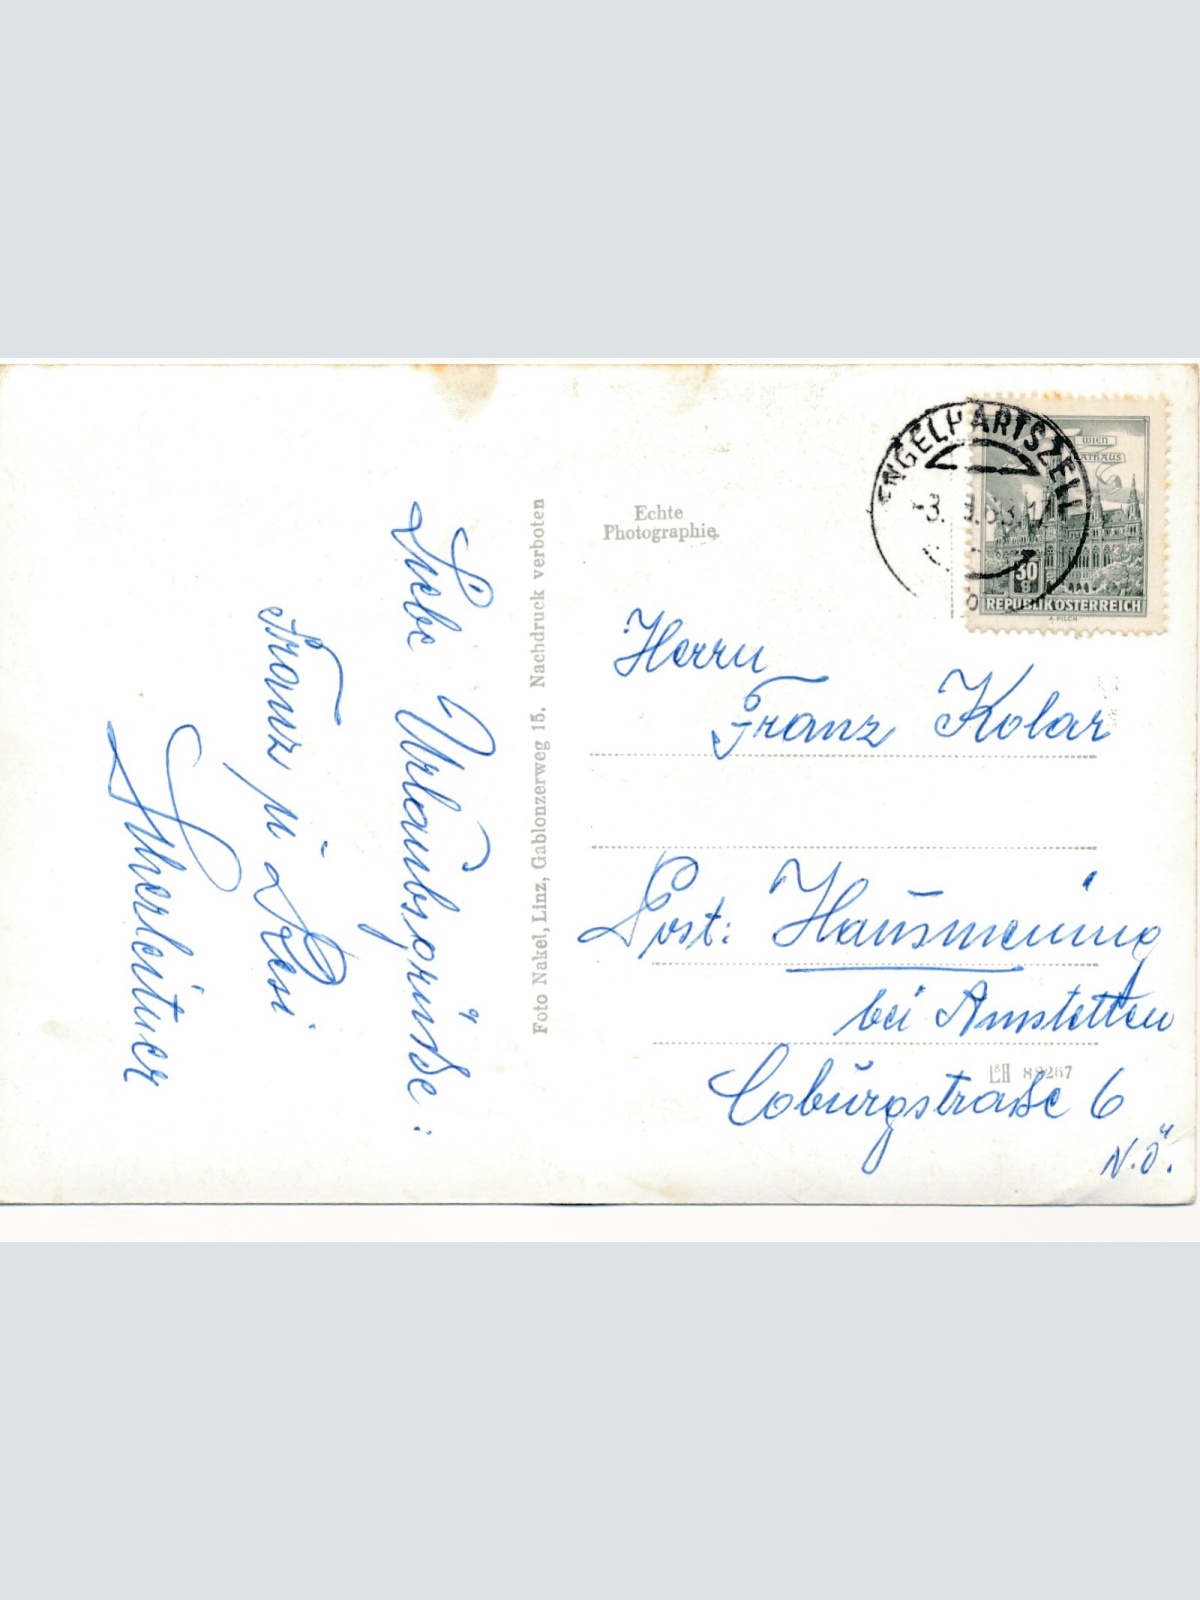 Liebe Urlaubsgrüße:
Franz u. Resi
Foto Nakel, Linz, Gablonzerweg 15. Nachdruck verboten
Echte
Photographie
ENGELHARTSZELL
WIEN
RATHAUS
30
REPUBLIK ÖSTERREICH
A. PILCH
Herrn
Franz Kolar
Post: Hausmening
bei Amstetten
88267
Coburgstraße 6
N.Ö.